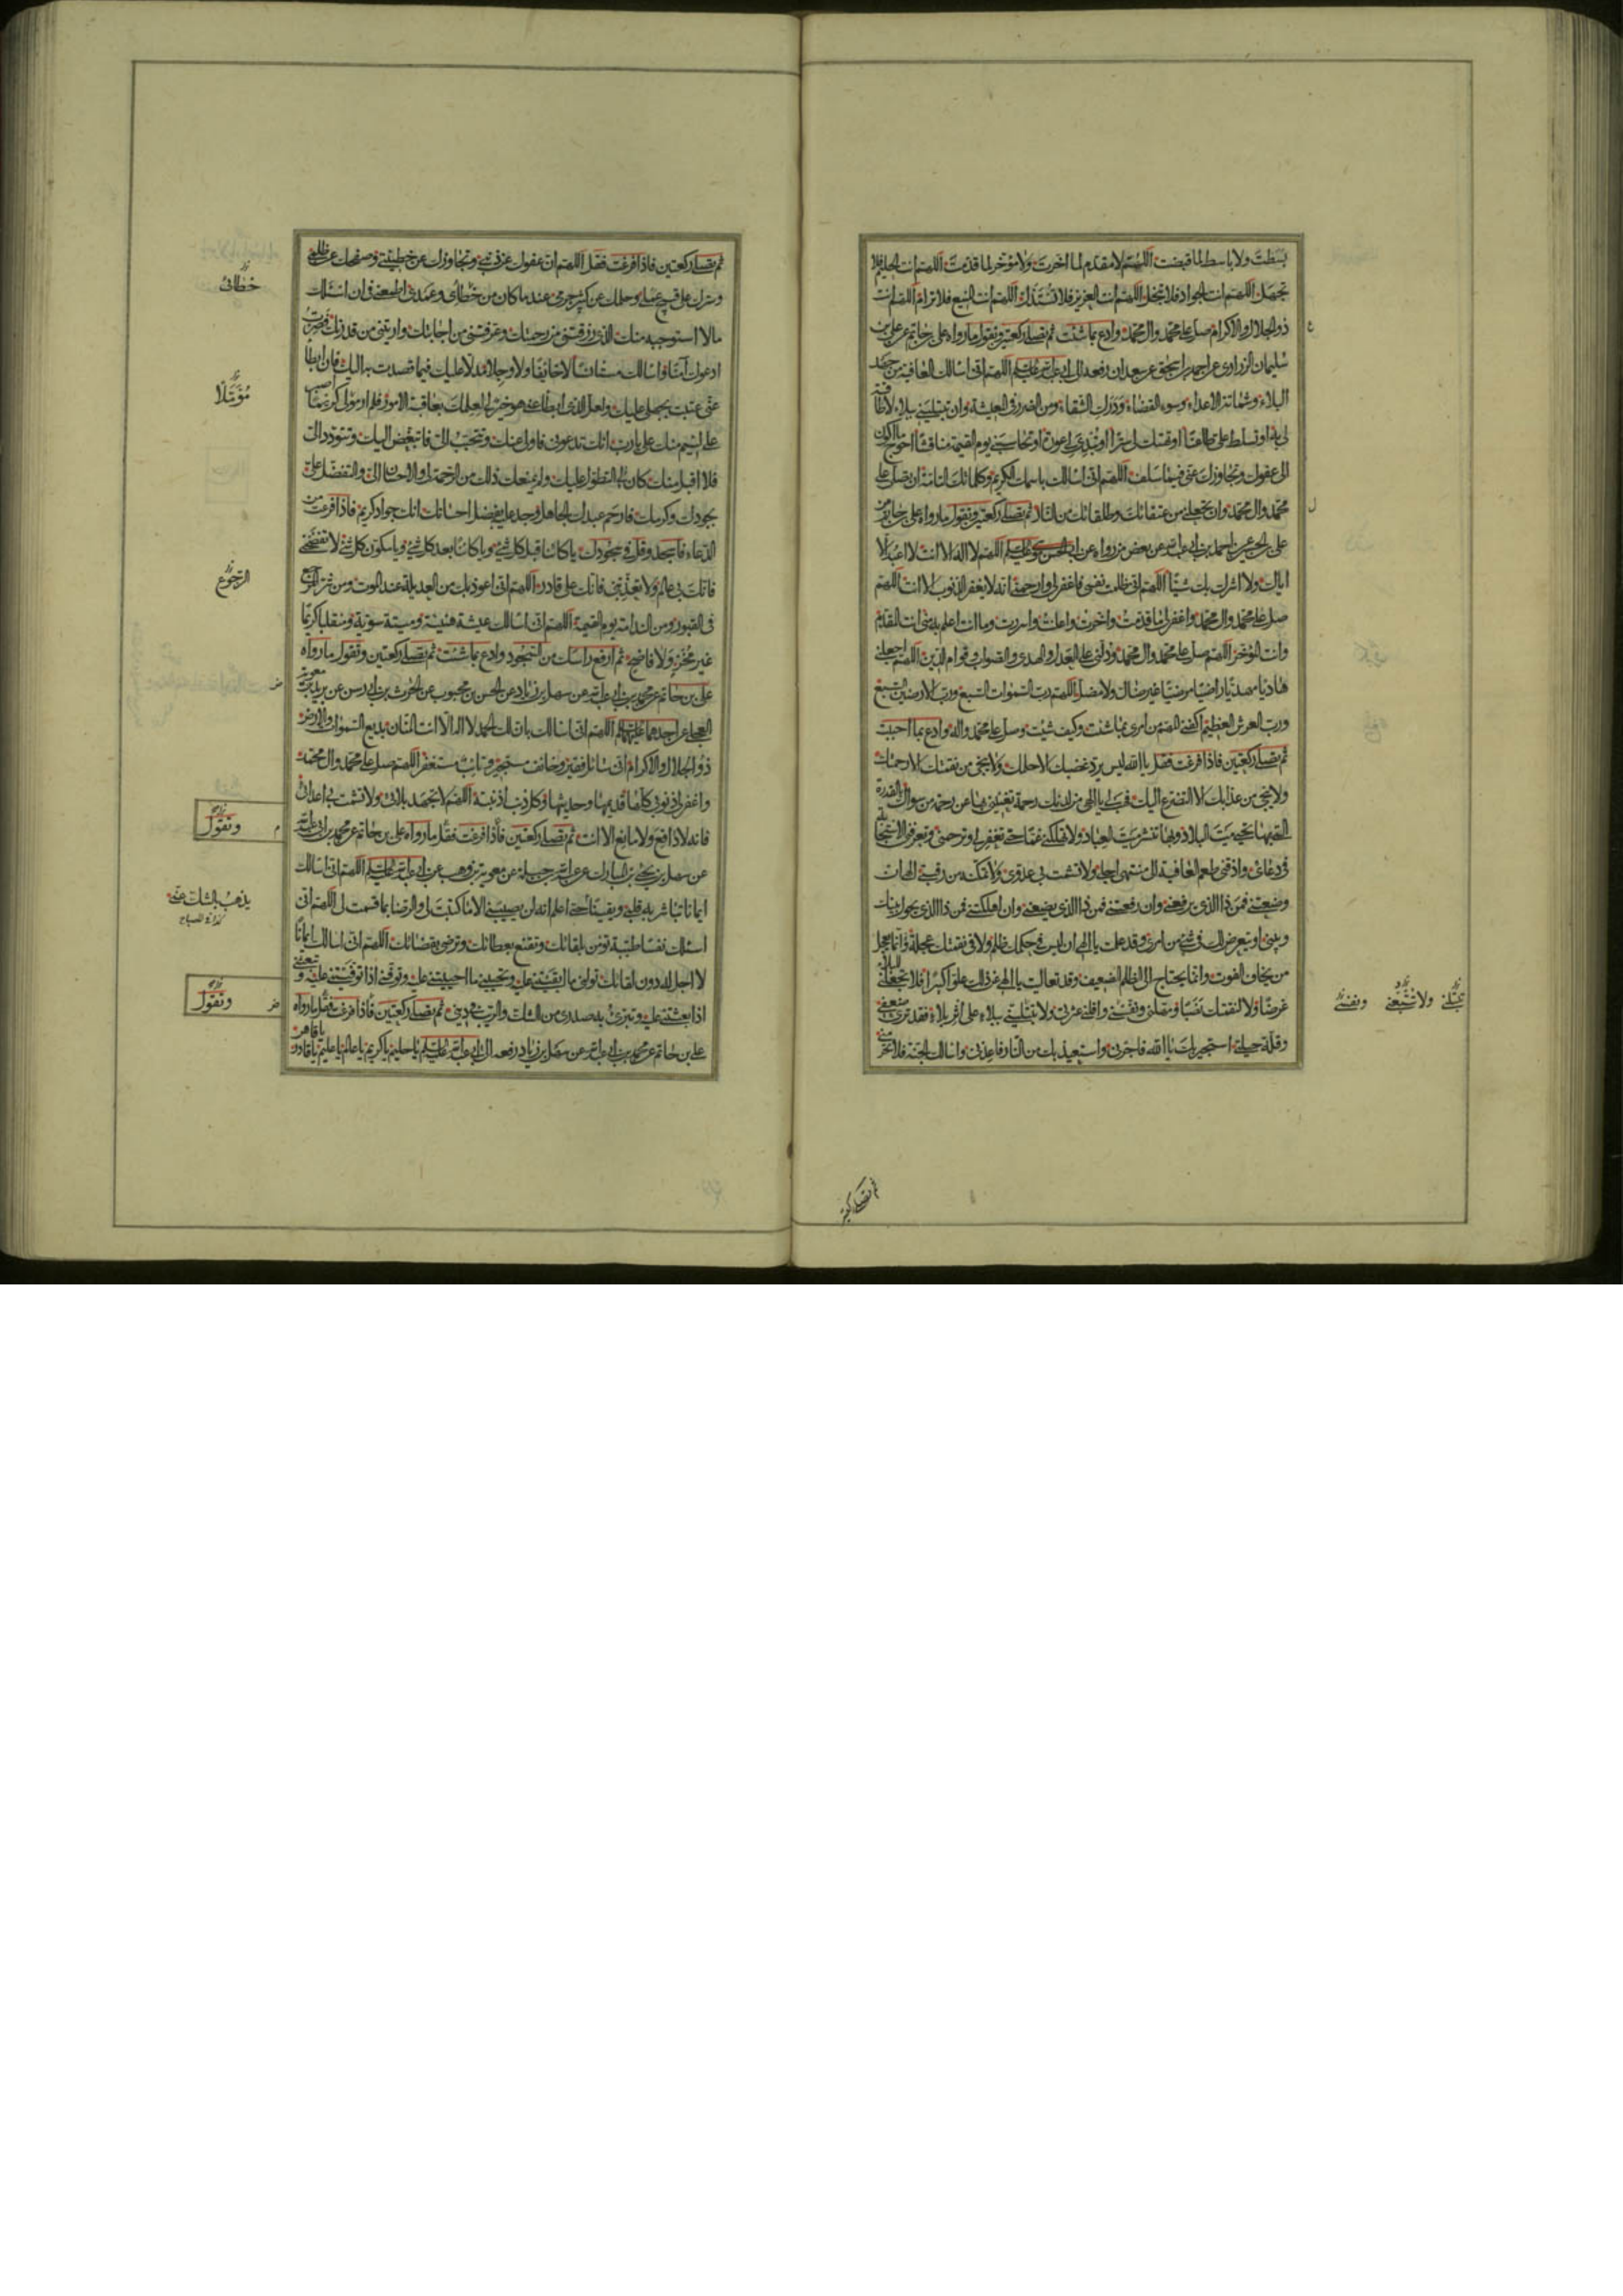 بسطت ولا باسط لما قبضت اللهم لا مقدم لما اخرت ولا مؤخر لما قدمت اللهم انت الحليم فلا
تجهل اللهم انت الجواد فلا تبخل اللهم انت العزيز فلا تستذل اللهم انت المنيع فلا ترام اللهم انت
ذو الجلال والاكرام صل على محمد وال محمد وادع بما شئت ثم تصلي ركعتين وتقول ما رواه علي بن حاتم عن علي بن
سليمان الزراري عن احمد بن اسحق عن سعدان رفعه الى ابي عبد الله عليه السلم اللهم اني اسالك العافية من جهد
البلاء وشماتة الاعداء وسوء القضاء ودرك الشقاء ومن الضرر في المعيشة وان تبتليني ببلاء لا طاقة
لي به او تسلط علي طاغيا او تهتك لي سترا او تبدي لي عورة او تحاسبني يوم القيمة مناقشا احوج ما اكون
الى عفوك وتجاوزك عني فيما سلف اللهم اني اسالك باسمك الكريم وكلماتك التامة ان تصلي على
محمد وال محمد وان تجعلني من عتقائك وطلقائك من النار ثم تصلي ركعتين وتقول ما رواه علي بن حاتم عن
علي بن الحسين عن احمد بن ابي عبد الله عن بعض من رواه عن ابي الحسن موسى عليه السلم اللهم لا اله الا انت لا اعبد الا
اياك ولا اشرك بك شيئا اللهم اني ظلمت نفسي فاغفر لي وارحمني انه لا يغفر الذنوب الا انت اللهم
صل على محمد وال محمد واغفر لي ما قدمت واخرت واعلنت واسررت وما انت اعلم به مني انت المقدم
وانت المؤخر اللهم صل على محمد وال محمد ودلني على العدل والهدى والصواب وقوام الدين اللهم اجعلني
هاديا مهديا راضيا مرضيا غير ضال ولا مضل اللهم رب السموات السبع ورب الارضين السبع
ورب العرش العظيم اكفني المهم من امري بما شئت وكيف شئت وصل على محمد واله وادع بما احببت
ثم تصلي ركعتين فاذا فرغت فقل يا الله ليس يرد غضبك الا حلمك ولا ينجي من نقمتك الا رحمتك
ولا ينجي من عذابك الا التضرع اليك فهب لي يا الهي من لدنك رحمة تغنيني بها عن رحمة من سواك بالقدرة
التي بها تحيي ميت البلاد وبها تنشر ميت العباد ولا تهلكني غما حتى تغفر لي وترحمني وتعرفني الاستجابة
في دعائي واذقني طعم العافية الى منتهى اجلي ولا تشمت بي عدوي ولا تمكنه من رقبتي الهي ان
وضعتني فمن ذا الذي يرفعني وان رفعتني فمن ذا الذي يضعني وان اهلكتني فمن ذا الذي يحول بينك
وبيني او يتعرض لك في شيء من امري وقد علمت يا الهي ان ليس في حكمك ظلم ولا في نقمتك عجلة وانما يعجل
من يخاف الفوت وانما يحتاج الى الظلم الضعيف وقد تعاليت يا الهي عن ذلك علوا كبيرا فلا تجعلني للبلاء
غرضا ولا لنقمتك نصبا ومهلني ونفسني واقلني عثرتي ولا تبتليني ببلاء على اثر بلاء فقد ترى ضعفي
وقلة حيلتي استجير بك يا الله فاجرني واستعيذ بك من النار فاعذني واسالك الجنة فلا تحرمني
تبتلني ولا تتبعني ونفسني
ثم تصلي ركعتين
ثم تصلي ركعتين فاذا فرغت فقل اللهم ان عفوك عن ذنبي وتجاوزك عن خطيئتي وصفحك عن ظلمي
وسترك على قبيح عملي وحلمك عن كثير جرمي عند ما كان من خطائي وعمدي اطمعني في ان اسئلك
ما لا استوجبه منك الذي رزقتني من رحمتك وعرفتني من اجابتك واريتني من قدرتك فصرت
ادعوك آمنا واسالك مستانسا لا خائفا ولا وجلا مدلا عليك فيما قصدت به اليك فان ابطا
عني عتبت بجهلي عليك ولعل الذي ابطا عني هو خير لي لعلمك بعاقبة الامور فلم ار مولى كريما اصبر
على عبد لئيم منك علي يا رب انك تدعوني فاولي عنك وتتحبب الي فاتبغض اليك وتتودد الي
فلا اقبل منك كان لي التطول عليك ولم يمنعك ذلك من الرحمة لي والاحسان الي والتفضل علي
بجودك وكرمك فارحم عبدك الجاهل وجد عليه بفضل احسانك انك جواد كريم فاذا فرغت من
الدعاء فاسجد وقل في سجودك يا كائنا قبل كل شيء ويا كائنا بعد كل شيء ويا مكون كل شيء لا تفضحني
فانك بي عالم ولا تعذبني فانك علي قادر اللهم اني اعوذ بك من العديلة عند الموت ومن شر المرجع
في القبور ومن الندامة يوم القيمة اللهم اني اسالك عيشة هنيئة وميتة سوية ومنقلبا كريما
غير مخز ولا فاضح ثم ارفع راسك من السجود وادع بما شئت ثم تصلي ركعتين وتقول ما رواه
علي بن حاتم عن محمد بن ابي عبد الله عن سهل بن زياد عن الحسن بن محبوب عن الحرث بن ادريس عن بريد بن معوية
العجلي عن احدهما عليهما السلم اللهم اني اسالك بان لك الحمد لا اله الا انت المنان بديع السموات والارض
ذو الجلال والاكرام اني سائل فقير وخائف مستجير وتائب مستغفر اللهم صل على محمد وال محمد
واغفر لي ذنوبي كلها قديمها وحديثها وكل ذنب اذنبته اللهم لا تجهد بلائي ولا تشمت بي اعدائي
فانه لا دافع ولا مانع الا انت ثم تصلي ركعتين فاذا فرغت فقل ما رواه علي بن حاتم عن محمد بن ابي عبد الله
عن سهل بن يحيى بن المبارك عن عبد الله بن جبلة عن معوية بن وهب عن ابي عبد الله عليه السلم اللهم اني اسالك
ايمانا تباشر به قلبي ويقينا حتى اعلم انه لن يصيبني الا ما كتبت لي والرضا بما قسمت لي اللهم اني
اسئلك نفسا طيبة تؤمن بلقائك وتقنع بعطائك وترضى بقضائك اللهم اني اسالك ايمانا
لا اجل له دون لقائك تولني ما ابقيتني عليه وتحييني ما احييتني عليه وتوفني اذا توفيتني عليه وتبعثني
اذا بعثتني عليه وتبرئ به صدري من الشك والريب في ديني ثم تصلي ركعتين فاذا فرغت فقل ما رواه
علي بن حاتم عن محمد بن ابي عبد الله عن سهل بن زياد رفعه الى ابي عبد الله عليه السلم يا حليم يا كريم يا عالم يا عليم يا قادر يا قاهر
خطائي
مؤملا
الرجوع
وتقول
يذهب بالشك عني
كذا في المصباح
وتقول